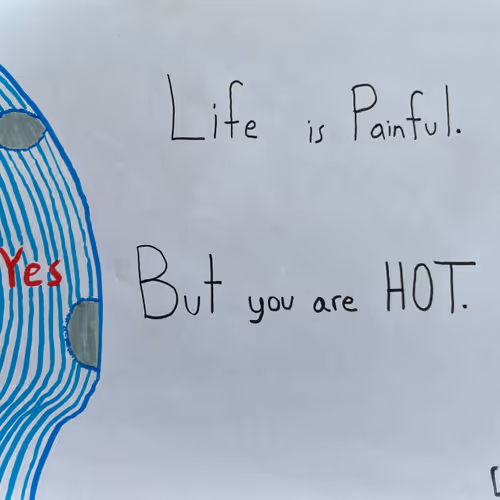 Life is Painful.
Yes
But you are HOT.